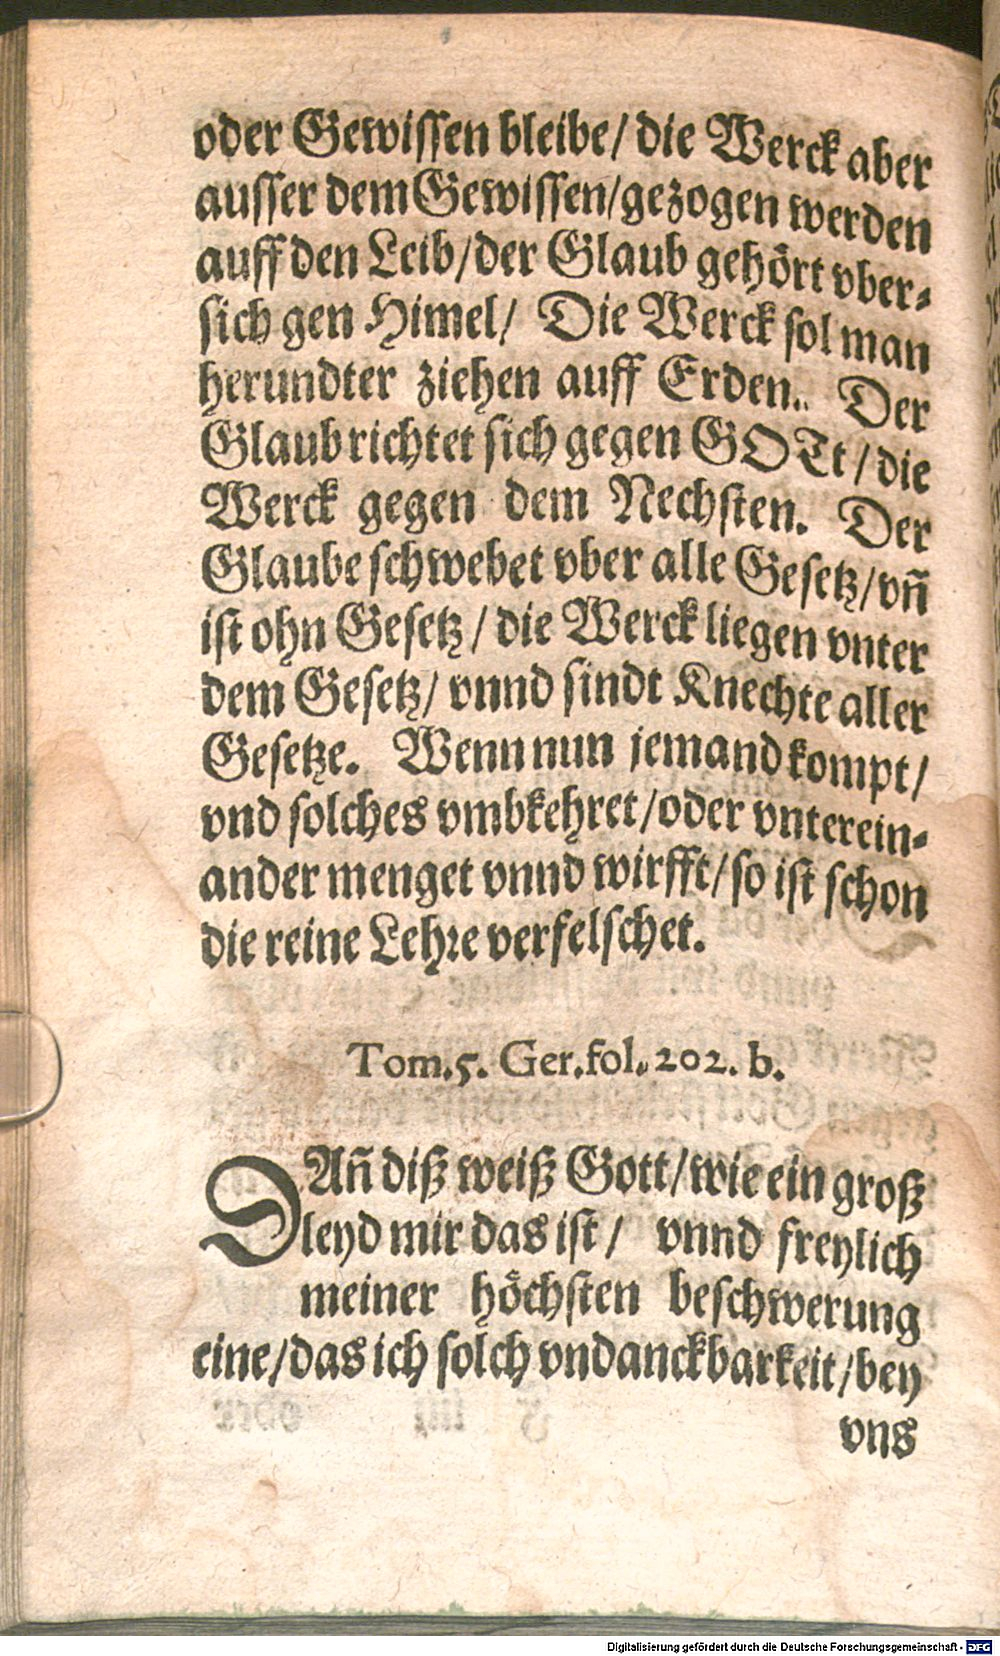 oder Gewissen bleibe/ die Werck aber
ausser dem Gewissen/gezogen werden
auff den Leib/der Glaub gehört vber⸗
sich gen Himel/ Die Werck sol man
herundter ziehen auff Erden.. Der
Glaub richtet sich gegen GOTt/die
Werck gegen dem Nechsten. Der
Glaube schwebet vber alle Gesetz/vñ
ist ohn Gesetz/die Werck liegen vnter
dem Gesetz/ vnnd sindt Knechte aller
Gesetze. Wenn nun jemand kompt/
vnd solches vmbkehret/oder vnterein⸗
ander menget vnnd wirfft/so ist schon
die reine Lehre verfelschet.
Tom.5. Ger.fol.202. b.
DAñ diß weiß Gott/wie ein groß
leyd mir das ist/ vnnd freylich
meiner höchsten beschwerung
eine/das ich solch vndanckbarkeit/bey
vns
Digitalisierung gefördert durch die Deutsche Forschungsgemeinschaft - DFG